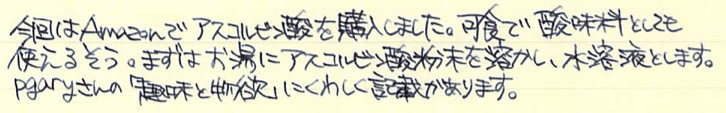 今回はAmazonでアスコルビン酸を購入しました。可食で酸味料としても
使えるそう。まずはお湯にアスコルビン酸粉末を溶かし、水溶液とします。
pgaryさんの「趣味と物欲」にくわしく記載があります。